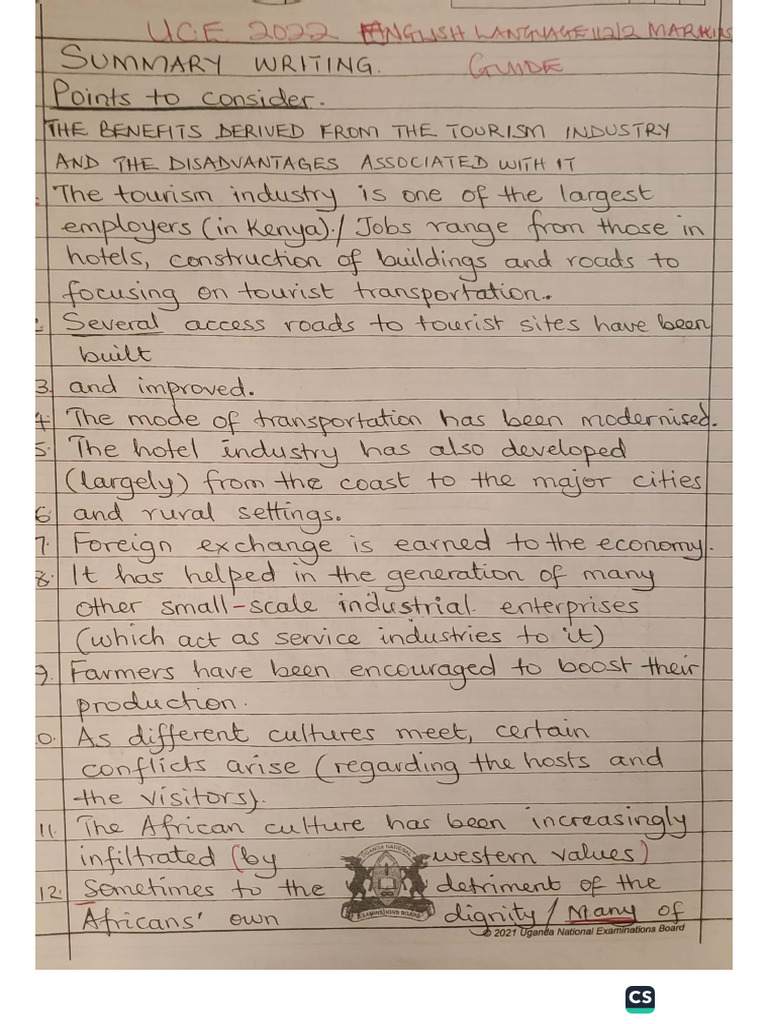 UCE 2022 ENGLISH LANGUAGE 112/2 MARKING
SUMMARY WRITING. GUIDE
Points to consider.
THE BENEFITS DERIVED FROM THE TOURISM INDUSTRY
AND THE DISADVANTAGES ASSOCIATED WITH IT
The tourism industry is one of the largest
employers (in Kenya). / Jobs range from those in
hotels, construction of buildings and roads to
focusing on tourist transportation.
Several access roads to tourist sites have been
built
3. and improved.
4. The mode of transportation has been modernised.
5. The hotel industry has also developed
(largely) from the coast to the major cities
6. and rural settings.
7. Foreign exchange is earned to the economy.
8. It has helped in the generation of many
other small-scale industrial enterprises
(which act as service industries to it)
9. Farmers have been encouraged to boost their
production.
0. As different cultures meet, certain
conflicts arise (regarding the hosts and
the visitors).
11. The African culture has been increasingly
infiltrated (by western values)
12. Sometimes to the detriment of the
Africans' own dignity / Many of
UGANDA NATIONAL
EXAMINATIONS BOARD
© 2021 Uganda National Examinations Board
CS